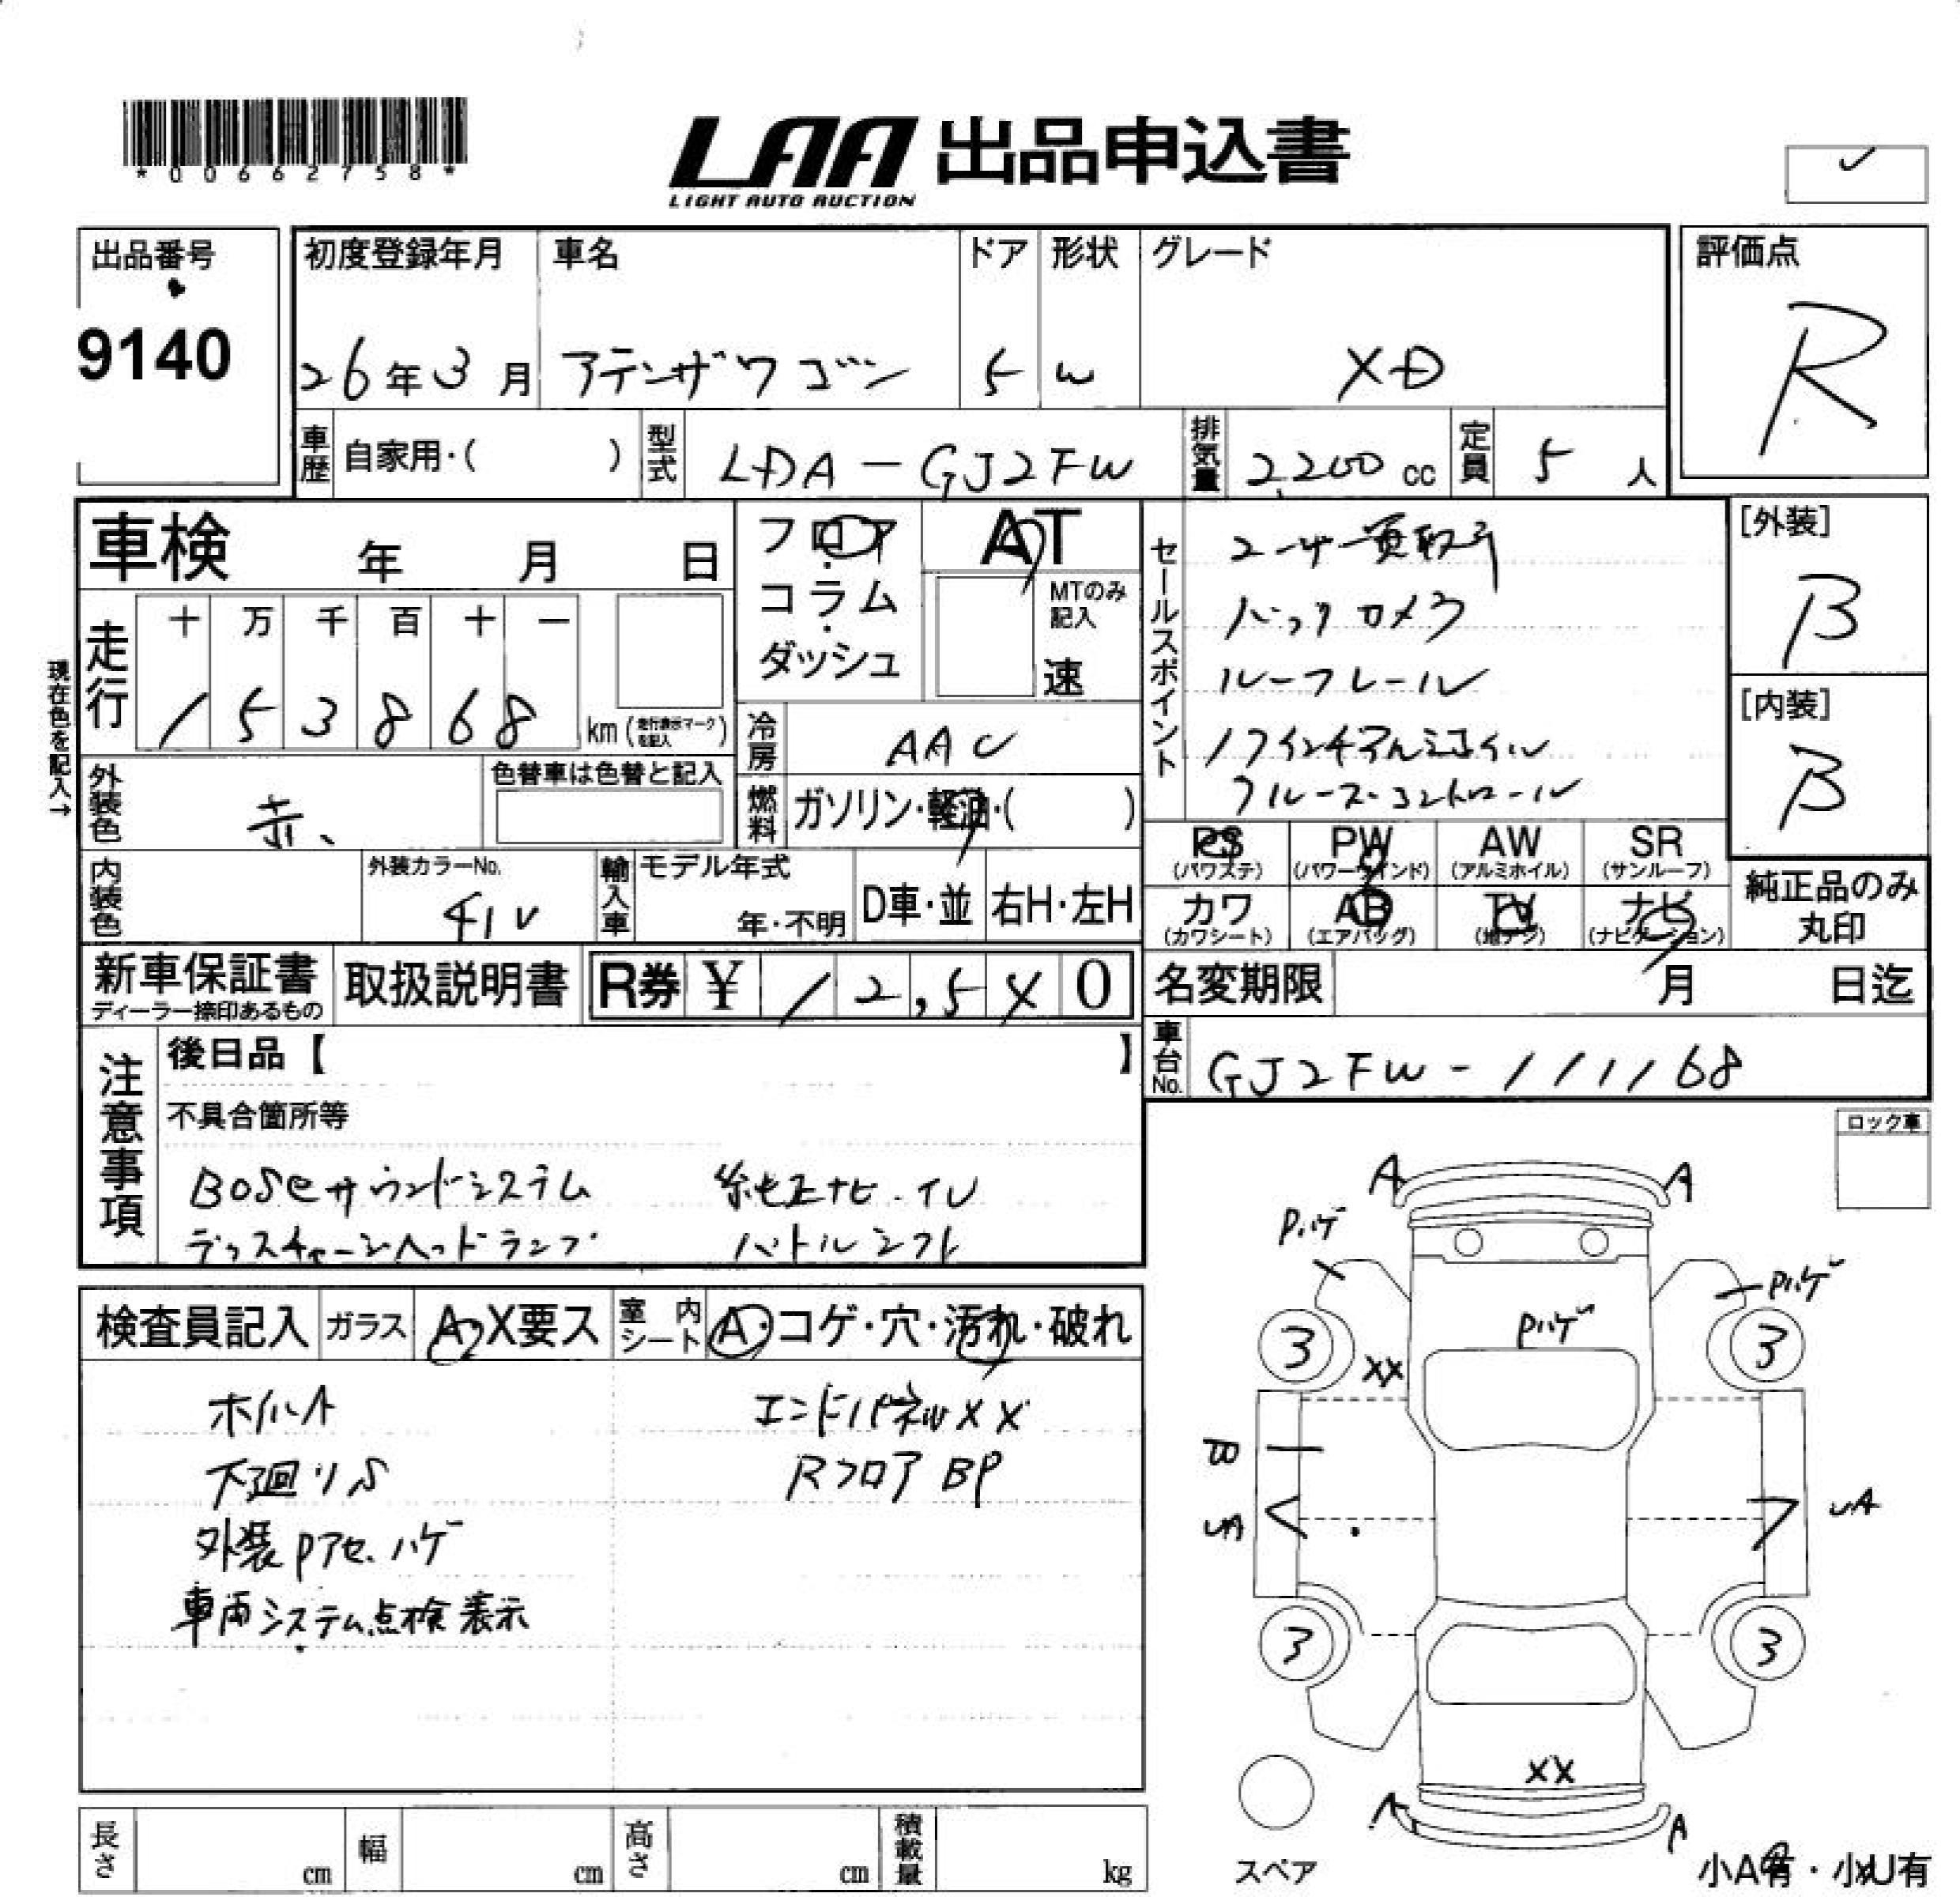 *00662758*
LAA 出品申込書
LIGHT AUTO AUCTION
出品番号
9140
初度登録年月
26年3月
車名
アテンザワゴン
ドア
5
形状
W
グレード
XD
評価点
R
車歴 自家用・( )
型式 LDA-GJ2FW
排気量 2,200 cc
定員 5 人
車検 年 月 日
フロア
コラム
ダッシュ
AT
MTのみ記入
速
走行
十 万 千 百 十 一
1 5 3 8 6 8 km (走行表示マークを記入)
現在色を記入→
冷房 AAC
外装色 赤
色替車は色替と記入
燃料 ガソリン・軽油・( )
内装色
外装カラーNo.
41V
輸入車
モデル年式
年・不明
D車・並
右H・左H
セールスポイント
ユーザー買取車
バックカメラ
ルーフレール
17インチアルミホイル
クルーズコントロール
[外装]
B
[内装]
B
PS
(パワステ)
PW
(パワーウインド)
AW
(アルミホイル)
SR
(サンルーフ)
カワ
(カワシート)
AB
(エアバッグ)
TV
(地デジ)
ナビ
(ナビゲーション)
純正品のみ
丸印
新車保証書
ディーラー捺印あるもの
取扱説明書
R券 ¥ 12,540
名変期限 月 日迄
車台No. GJ2FW-111168
注意事項
後日品【 】
不具合箇所等
BOSEサウンドシステム 純正ナビ・TV
ディスチャージヘッドランプ パドルシフト
ロック車
検査員記入
ガラス A・X要ス
室内シート A・コゲ・穴・汚れ・破れ
ホイルA
下廻りS
外装Pアセ、ハゲ
車両システム点検表示
エンドパネルXX
Rフロア BP
A A
Pハゲ
Pハゲ
Pハゲ
3 3
XX
B
UA
UA
3 3
XX
A A
スペア
小A有・小U有
長さ cm
幅 cm
高さ cm
積載量 kg